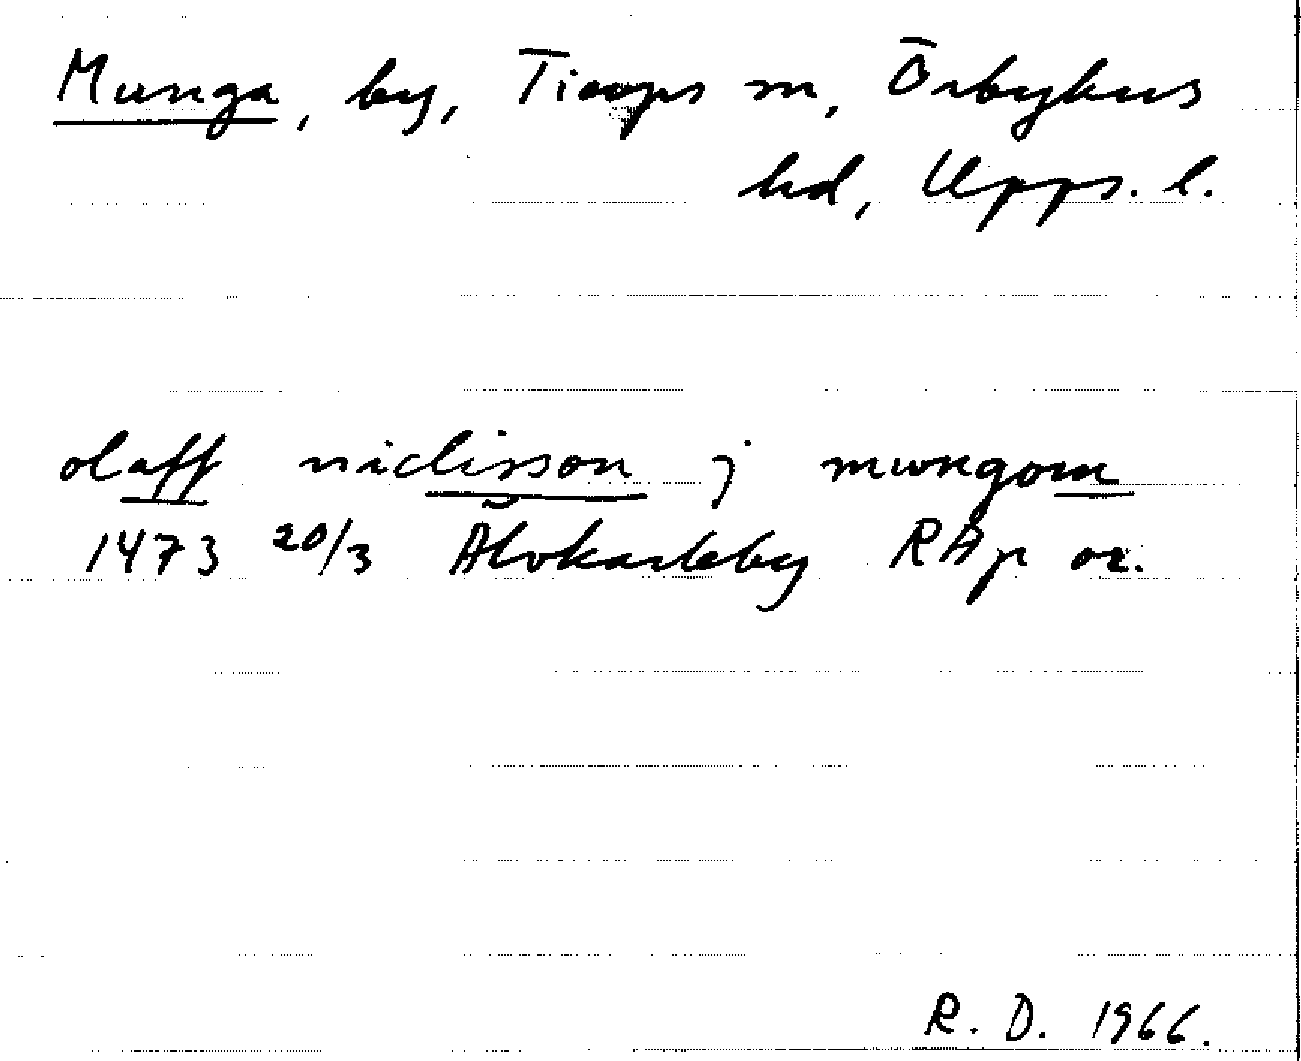 Munga, by, Tierps sn, Örbyhus
hd, Upps. l.
olaff niclisson j mwngom
1473 20/3 Älvkarleby RAp or.
R. D. 1966.